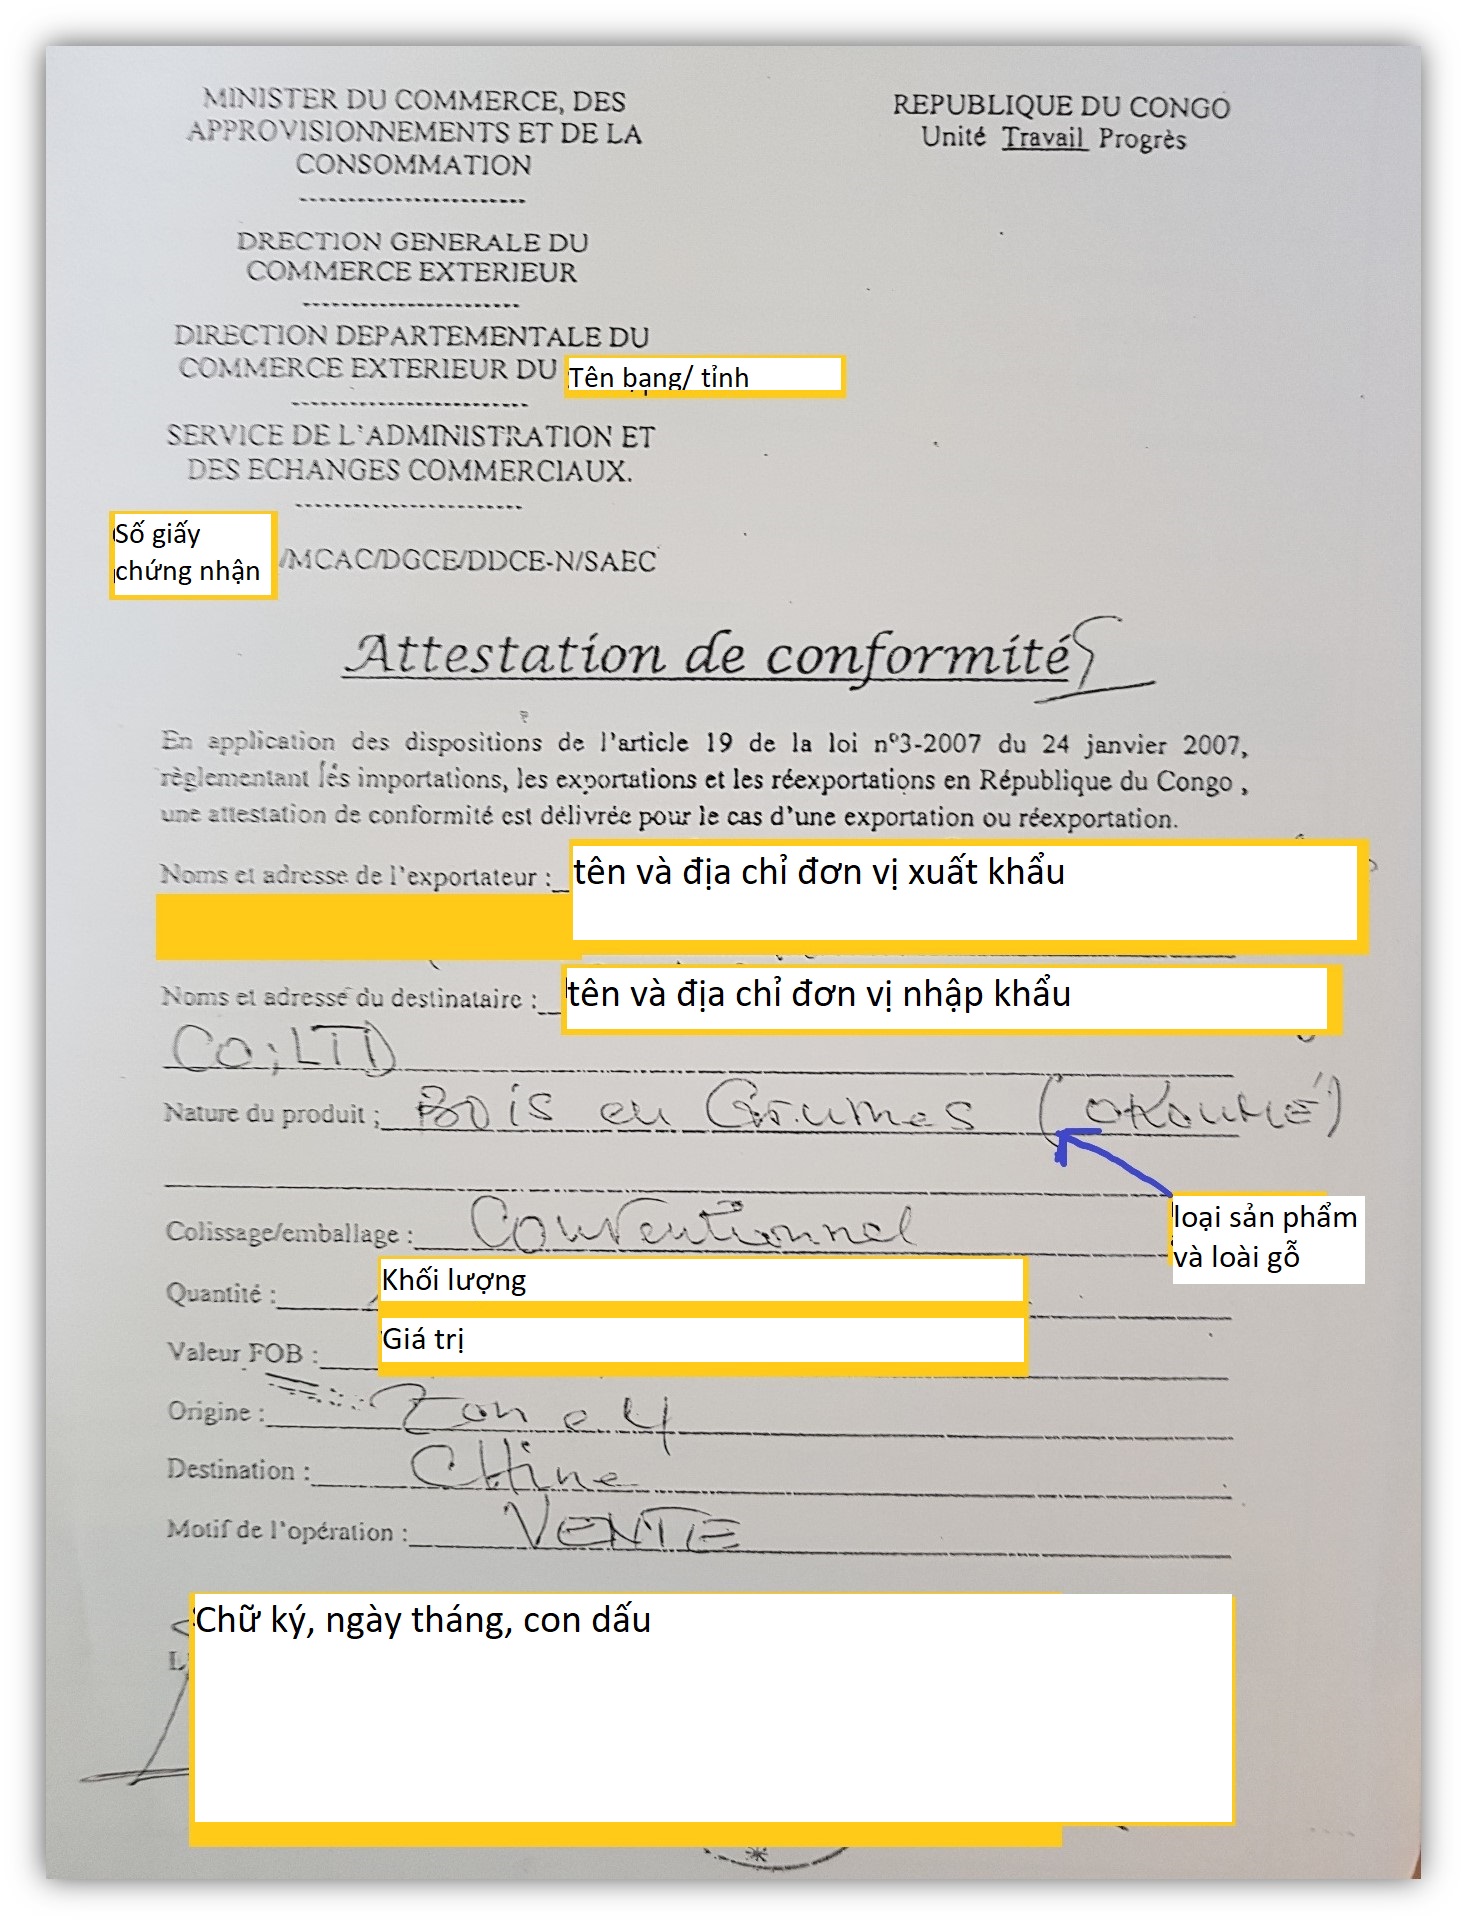 MINISTER DU COMMERCE, DES
APPROVISIONNEMENTS ET DE LA
CONSOMMATION
REPUBLIQUE DU CONGO
Unité Travail Progrès
DRECTION GENERALE DU
COMMERCE EXTERIEUR
DIRECTION DEPARTEMENTALE DU
COMMERCE EXTERIEUR DU Tên bạng/ tỉnh
SERVICE DE L'ADMINISTRATION ET
DES ECHANGES COMMERCIAUX.
Số giấy
chứng nhận /MCAC/DGCE/DDCE-N/SAEC
Attestation de conformité
En application des dispositions de l'article 19 de la loi n°3-2007 du 24 janvier 2007,
règlementant lés importations, les exportations et les réexportations en République du Congo ,
une attestation de conformité est délivrée pour le cas d'une exportation ou réexportation.
Noms et adresse de l'exportateur : tên và địa chỉ đơn vị xuất khẩu
Noms et adresse du destinataire : tên và địa chỉ đơn vị nhập khẩu
CO; LTD
Nature du produit ; Bois en Grumes (OKOUMÉ)
loại sản phẩm
và loài gỗ
Colissage/emballage : Conventionnel
Quantité : Khối lượng
Valeur FOB : Giá trị
Origine : Zone 4
Destination : CHine
Motif de l'opération : VENTE
Chữ ký, ngày tháng, con dấu